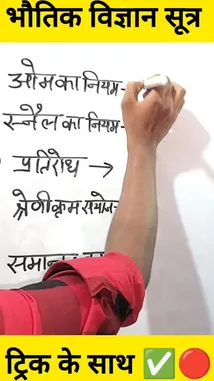 भौतिक विज्ञान सूत्र
ओम का नियम-
स्नैल का नियम-
प्रतिरोध →
श्रेणीक्रम संयोज-
ट्रिक के साथ ✅🔴